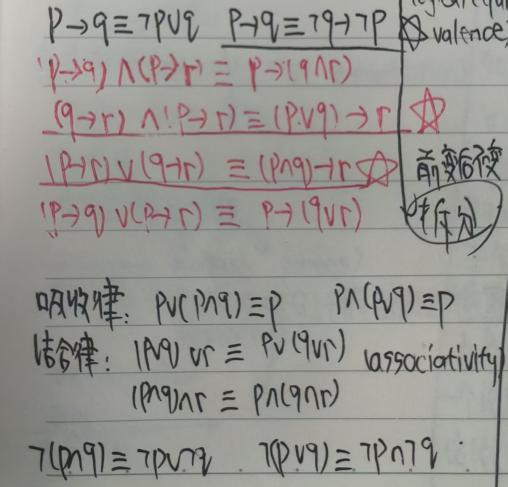 P→q≡¬p∨q P→q≡¬q→¬p ☆ valence
(p→q)∧(p→r)≡p→(q∧r)
(q→r)∧(p→r)≡(p∨q)→r ☆
(p→r)∨(q→r)≡(p∧q)→r ☆ 前变后不变
(p→q)∨(p→r)≡p→(q∨r)
吸收律: p∨(p∧q)≡p p∧(p∨q)≡p
结合律: (p∨q)∨r≡p∨(q∨r) (associativity)
(p∧q)∧r≡p∧(q∧r)
¬(p∧q)≡¬p∨¬q ¬(p∨q)≡¬p∧¬q